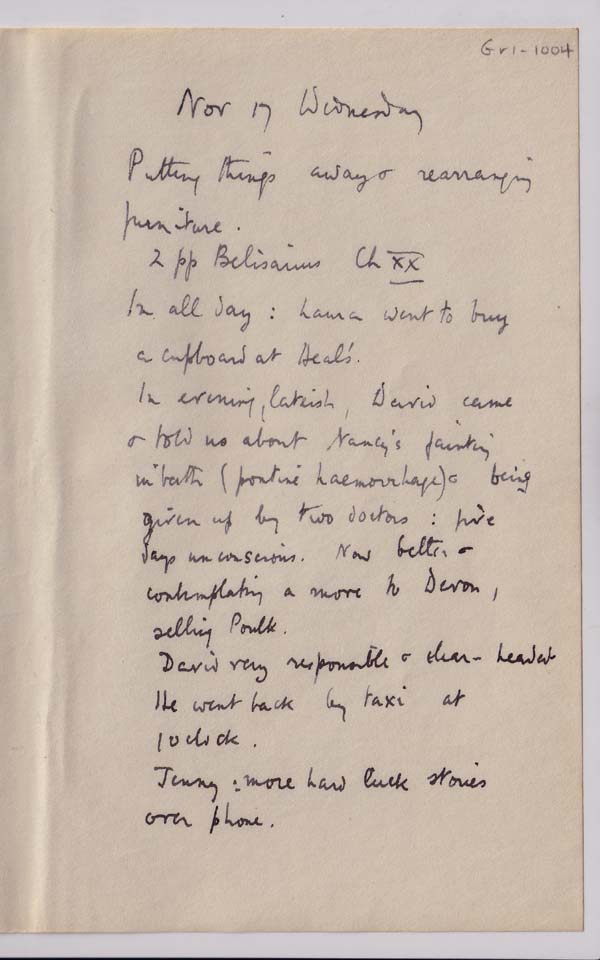 Gr1-1004
Nov 17 Wednesday
Putting things away & rearranging
furniture.
2 pp Belisarius Ch XX
In all day : Laura went to buy
a cupboard at Heal's.
In evening, lateish, David came
& told us about Nancy's fainting
in bath (pontine haemorrhage) & being
given up by two doctors : five
days unconscious. Now better &
contemplating a move to Devon,
selling Poulk.
David very responsible & clear-headed
He went back by taxi at
1 oclock.
Jenny : more hard luck stories
over phone.